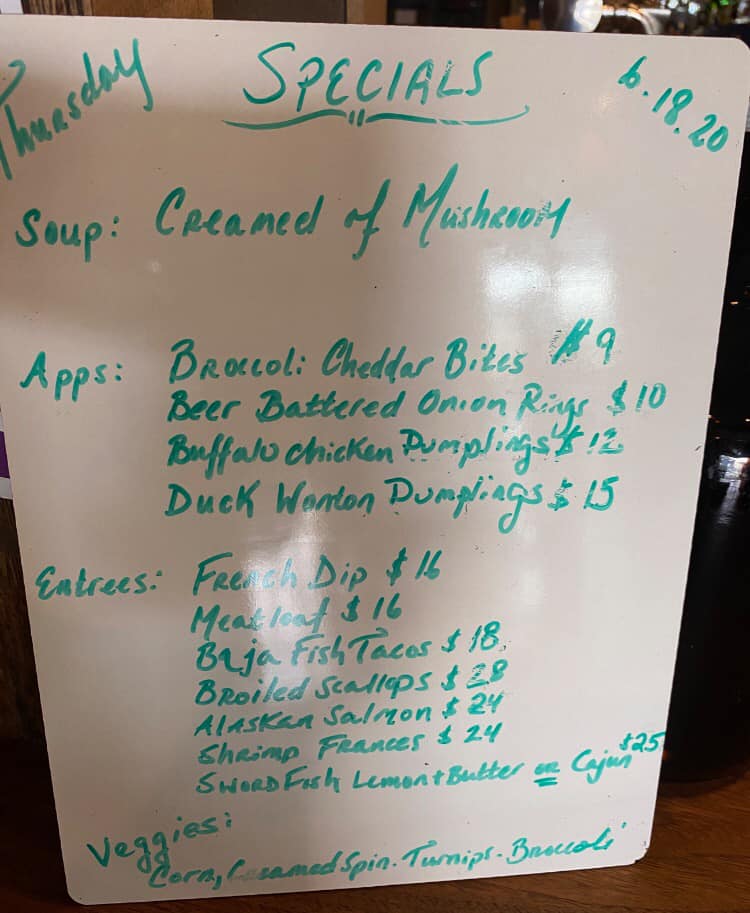 Thursday
SPECIALS
6.18.20
Soup: Creamed of Mushroom
Apps: Broccoli Cheddar Bites $9
Beer Battered Onion Rings $10
Buffalo chicken Dumplings $12
Duck Wonton Dumplings $15
Entrees: French Dip $16
Meatloaf $16
Baja Fish Tacos $18
Broiled Scallops $28
Alaskan Salmon $24
Shrimp Frances $24
Sword Fish Lemon + Butter or Cajun $25
Veggies:
Corn, Creamed Spin. Turnips. Broccoli